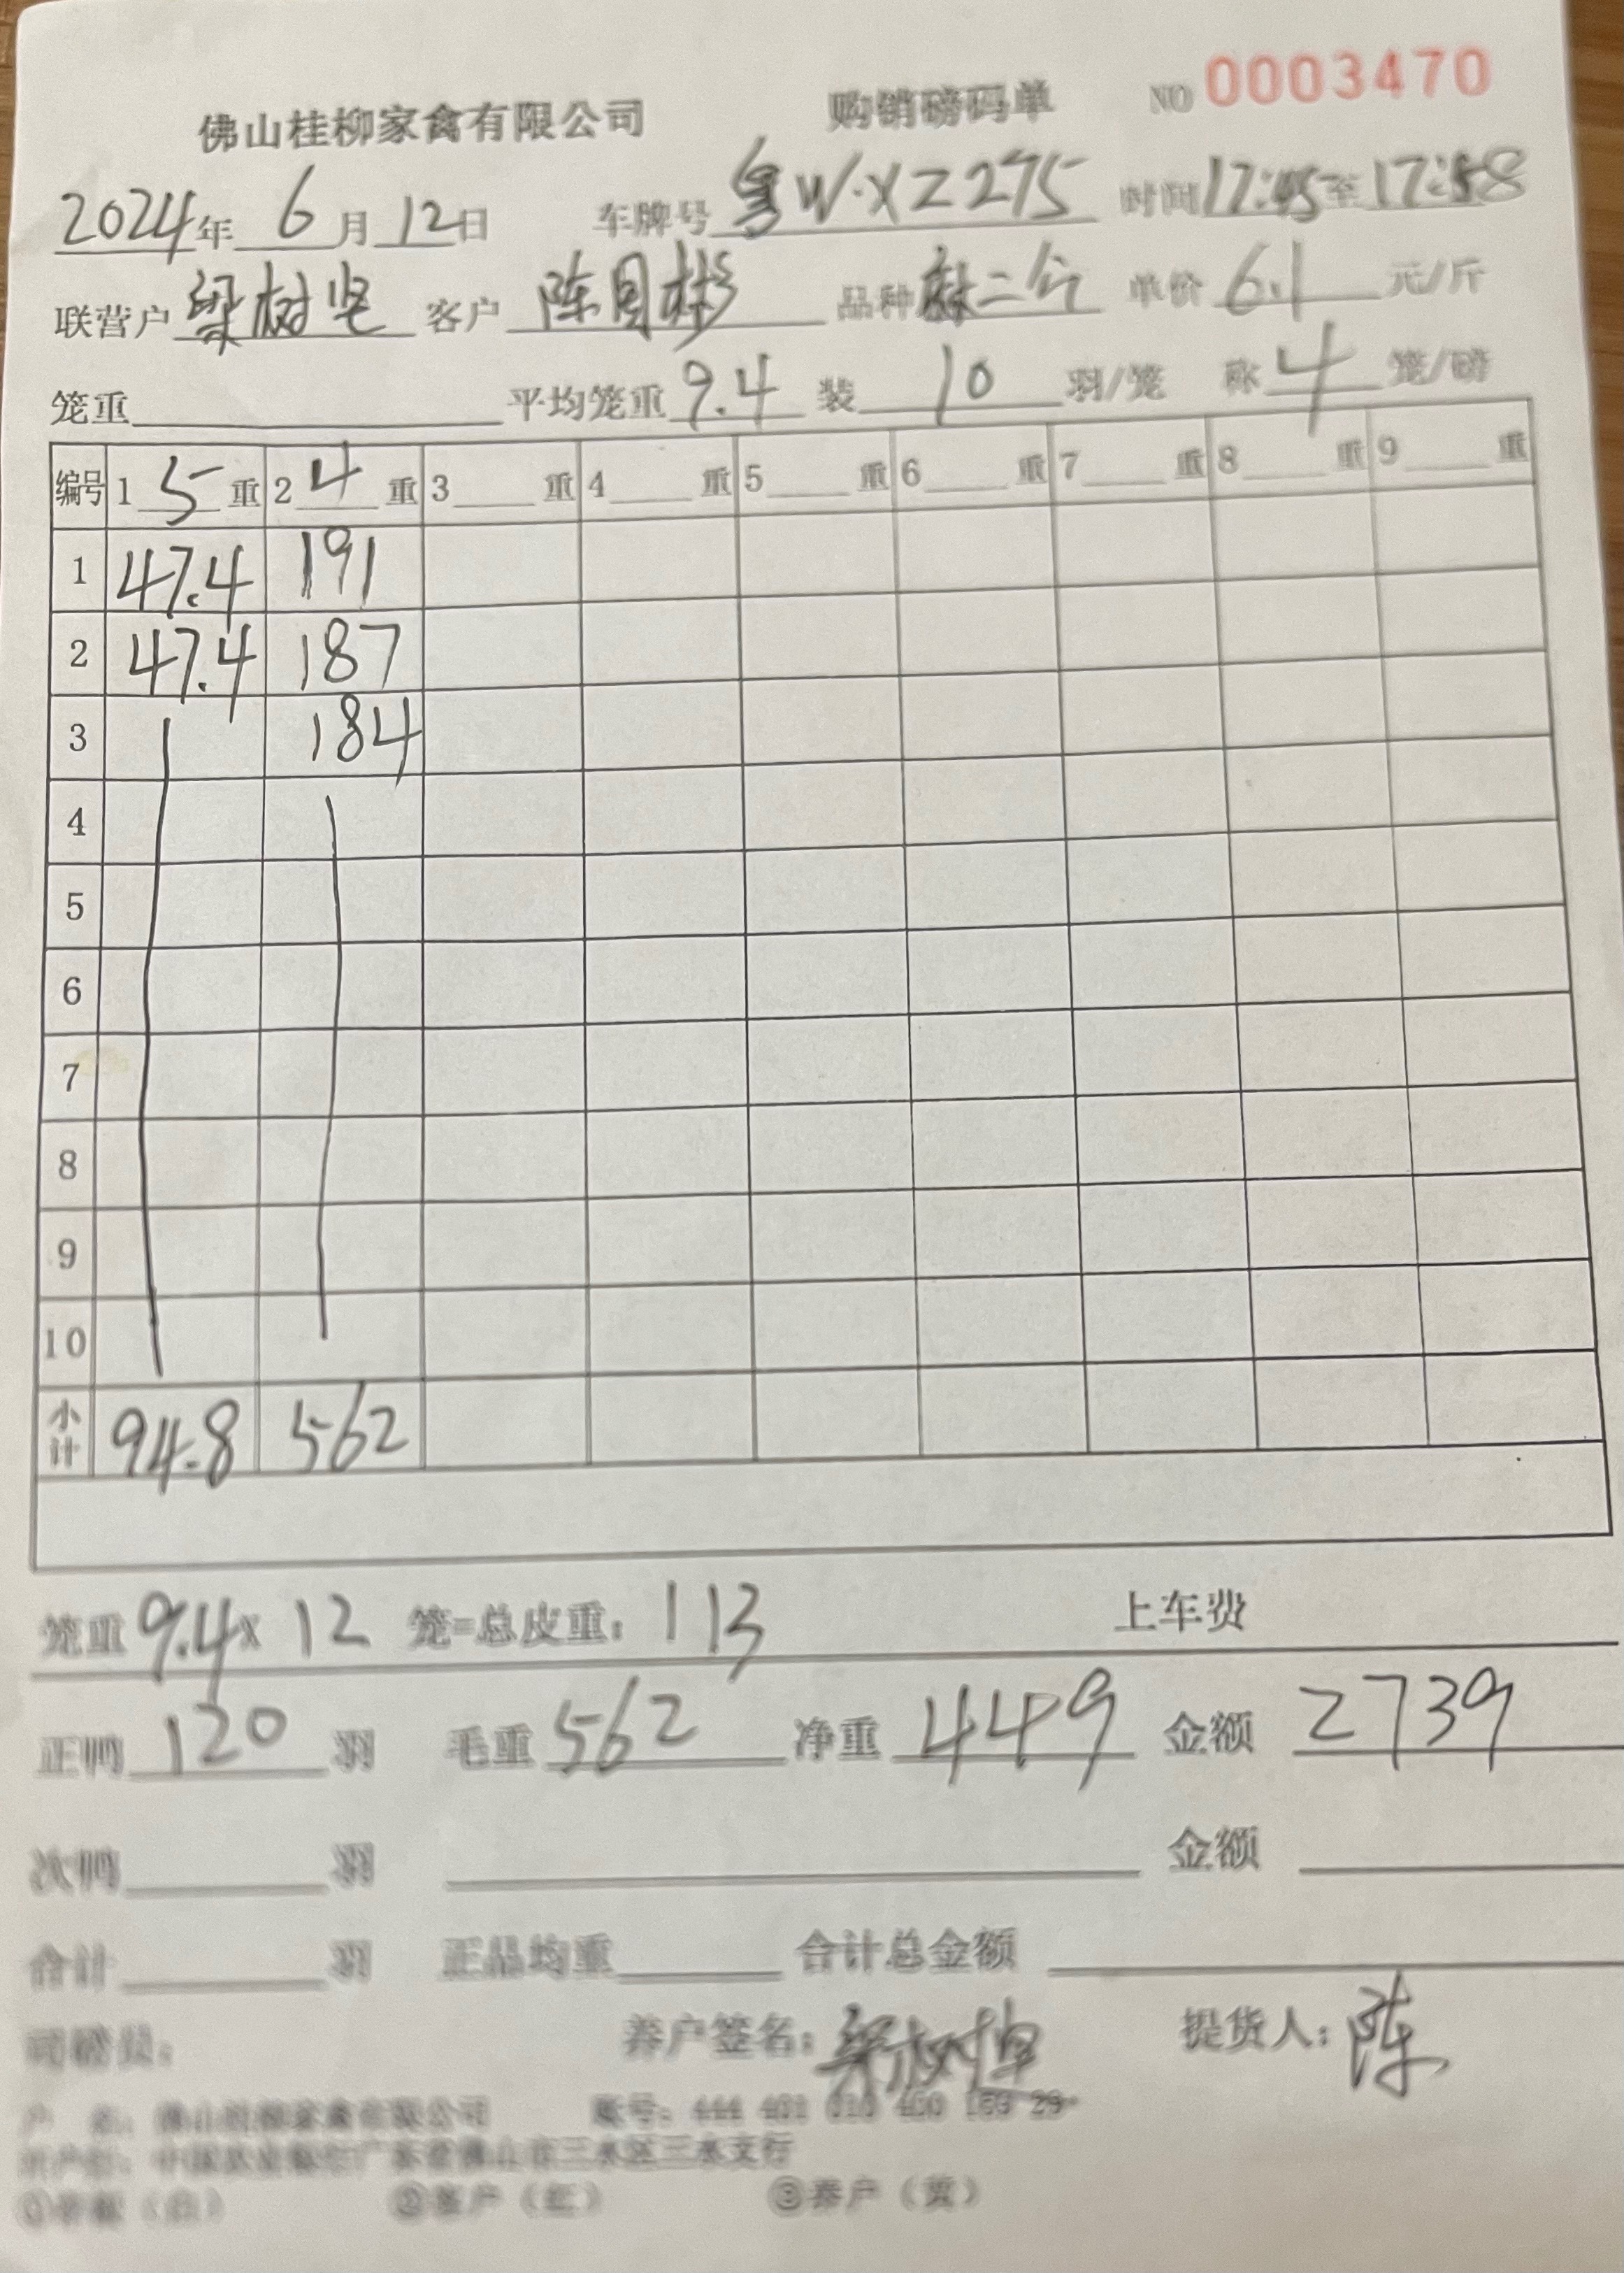 佛山桂柳家禽有限公司 购销磅码单 NO 0003470
2024年 6月 12日 车牌号 粤W·XZ275 时间 17:45至17:58
联营户 梁树坚 客户 陈国彬 品种 麻二公 单价 6.1 元/斤
笼重 平均笼重 9.4 装 10 羽/笼 称 4 笼/磅
编号 1 5 重 2 4 重 3 重 4 重 5 重 6 重 7 重 8 重 9 重
1 47.4 191
2 47.4 187
3 184
4
5
6
7
8
9
10
小计 94.8 562
笼重 9.4 x 12 笼=总皮重: 113 上车费
正鸭 120 羽 毛重 562 净重 449 金额 2739
次鸭 羽 金额
合计 羽 正品均重 合计总金额
司磅员: 养户签名: 梁树 提货人: 陈
户 名: 佛山桂柳家禽有限公司 账号:
开户行: 中国农业银行广东省佛山市三水区三水支行
②客户(红) ③养户(黄)